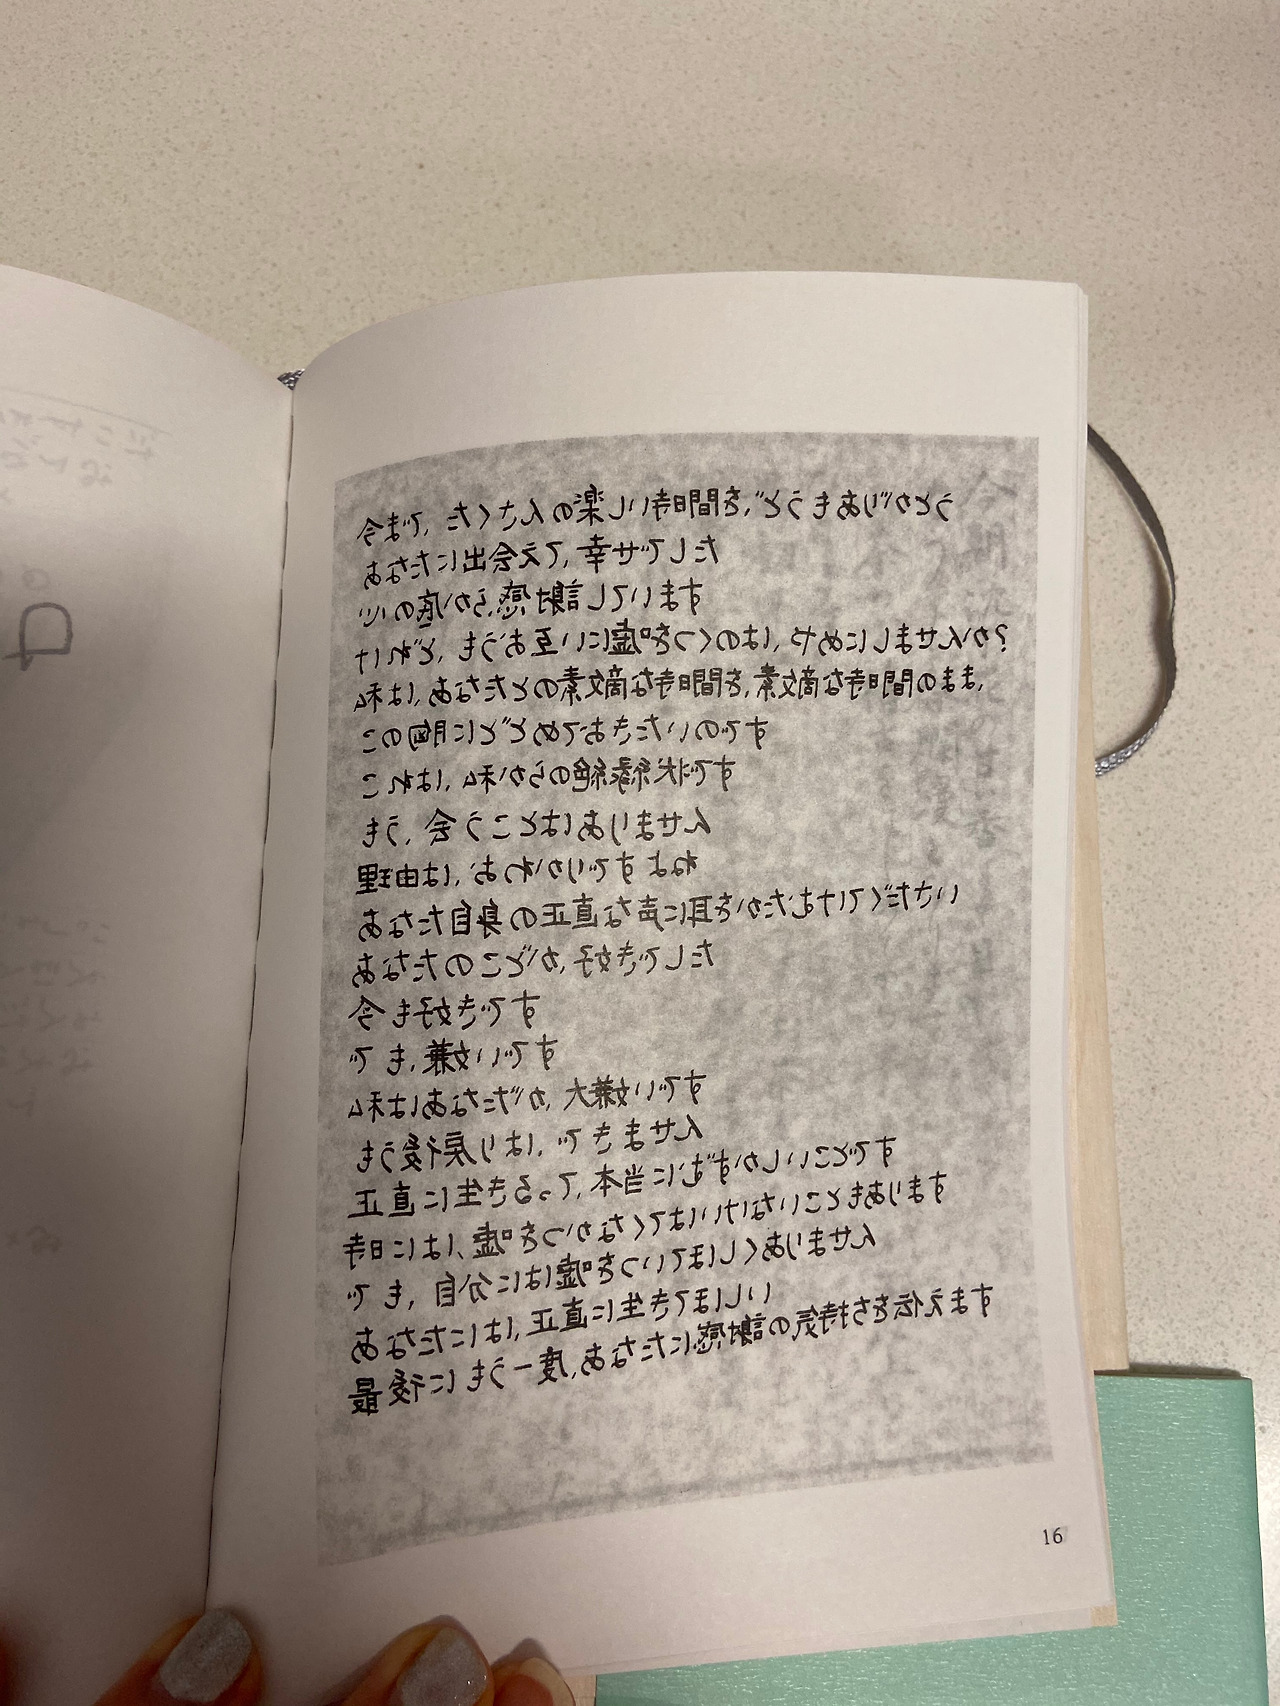 今まで、たくさんの楽しい時間を、どうもありがとう
あなたに出会えて、幸せでした
心の底から、感謝しています
けれど、もうお互いに嘘をつくのは、やめにしませんか?
私は、あなたとの素敵な時間を、素敵な時間のまま、
この胸にとどめておきたいのです
これは、私からの絶縁状です
もう、会うことはありません
理由は、おわかりですよね
あなた自身の正直な声に耳をかたむけてください
あなたのことが、好きでした
今も好きです
でも、嫌いです
私はあなたが、大嫌いです
もう後戻りは、できません
正直に生きるって、本当にむずかしいことです
時には、嘘をつかなくてはいけないこともあります
でも、自分には嘘をついてほしくありません
あなたには、正直に生きてほしい
最後にもう一度、あなたに感謝の気持ちを伝えます
16